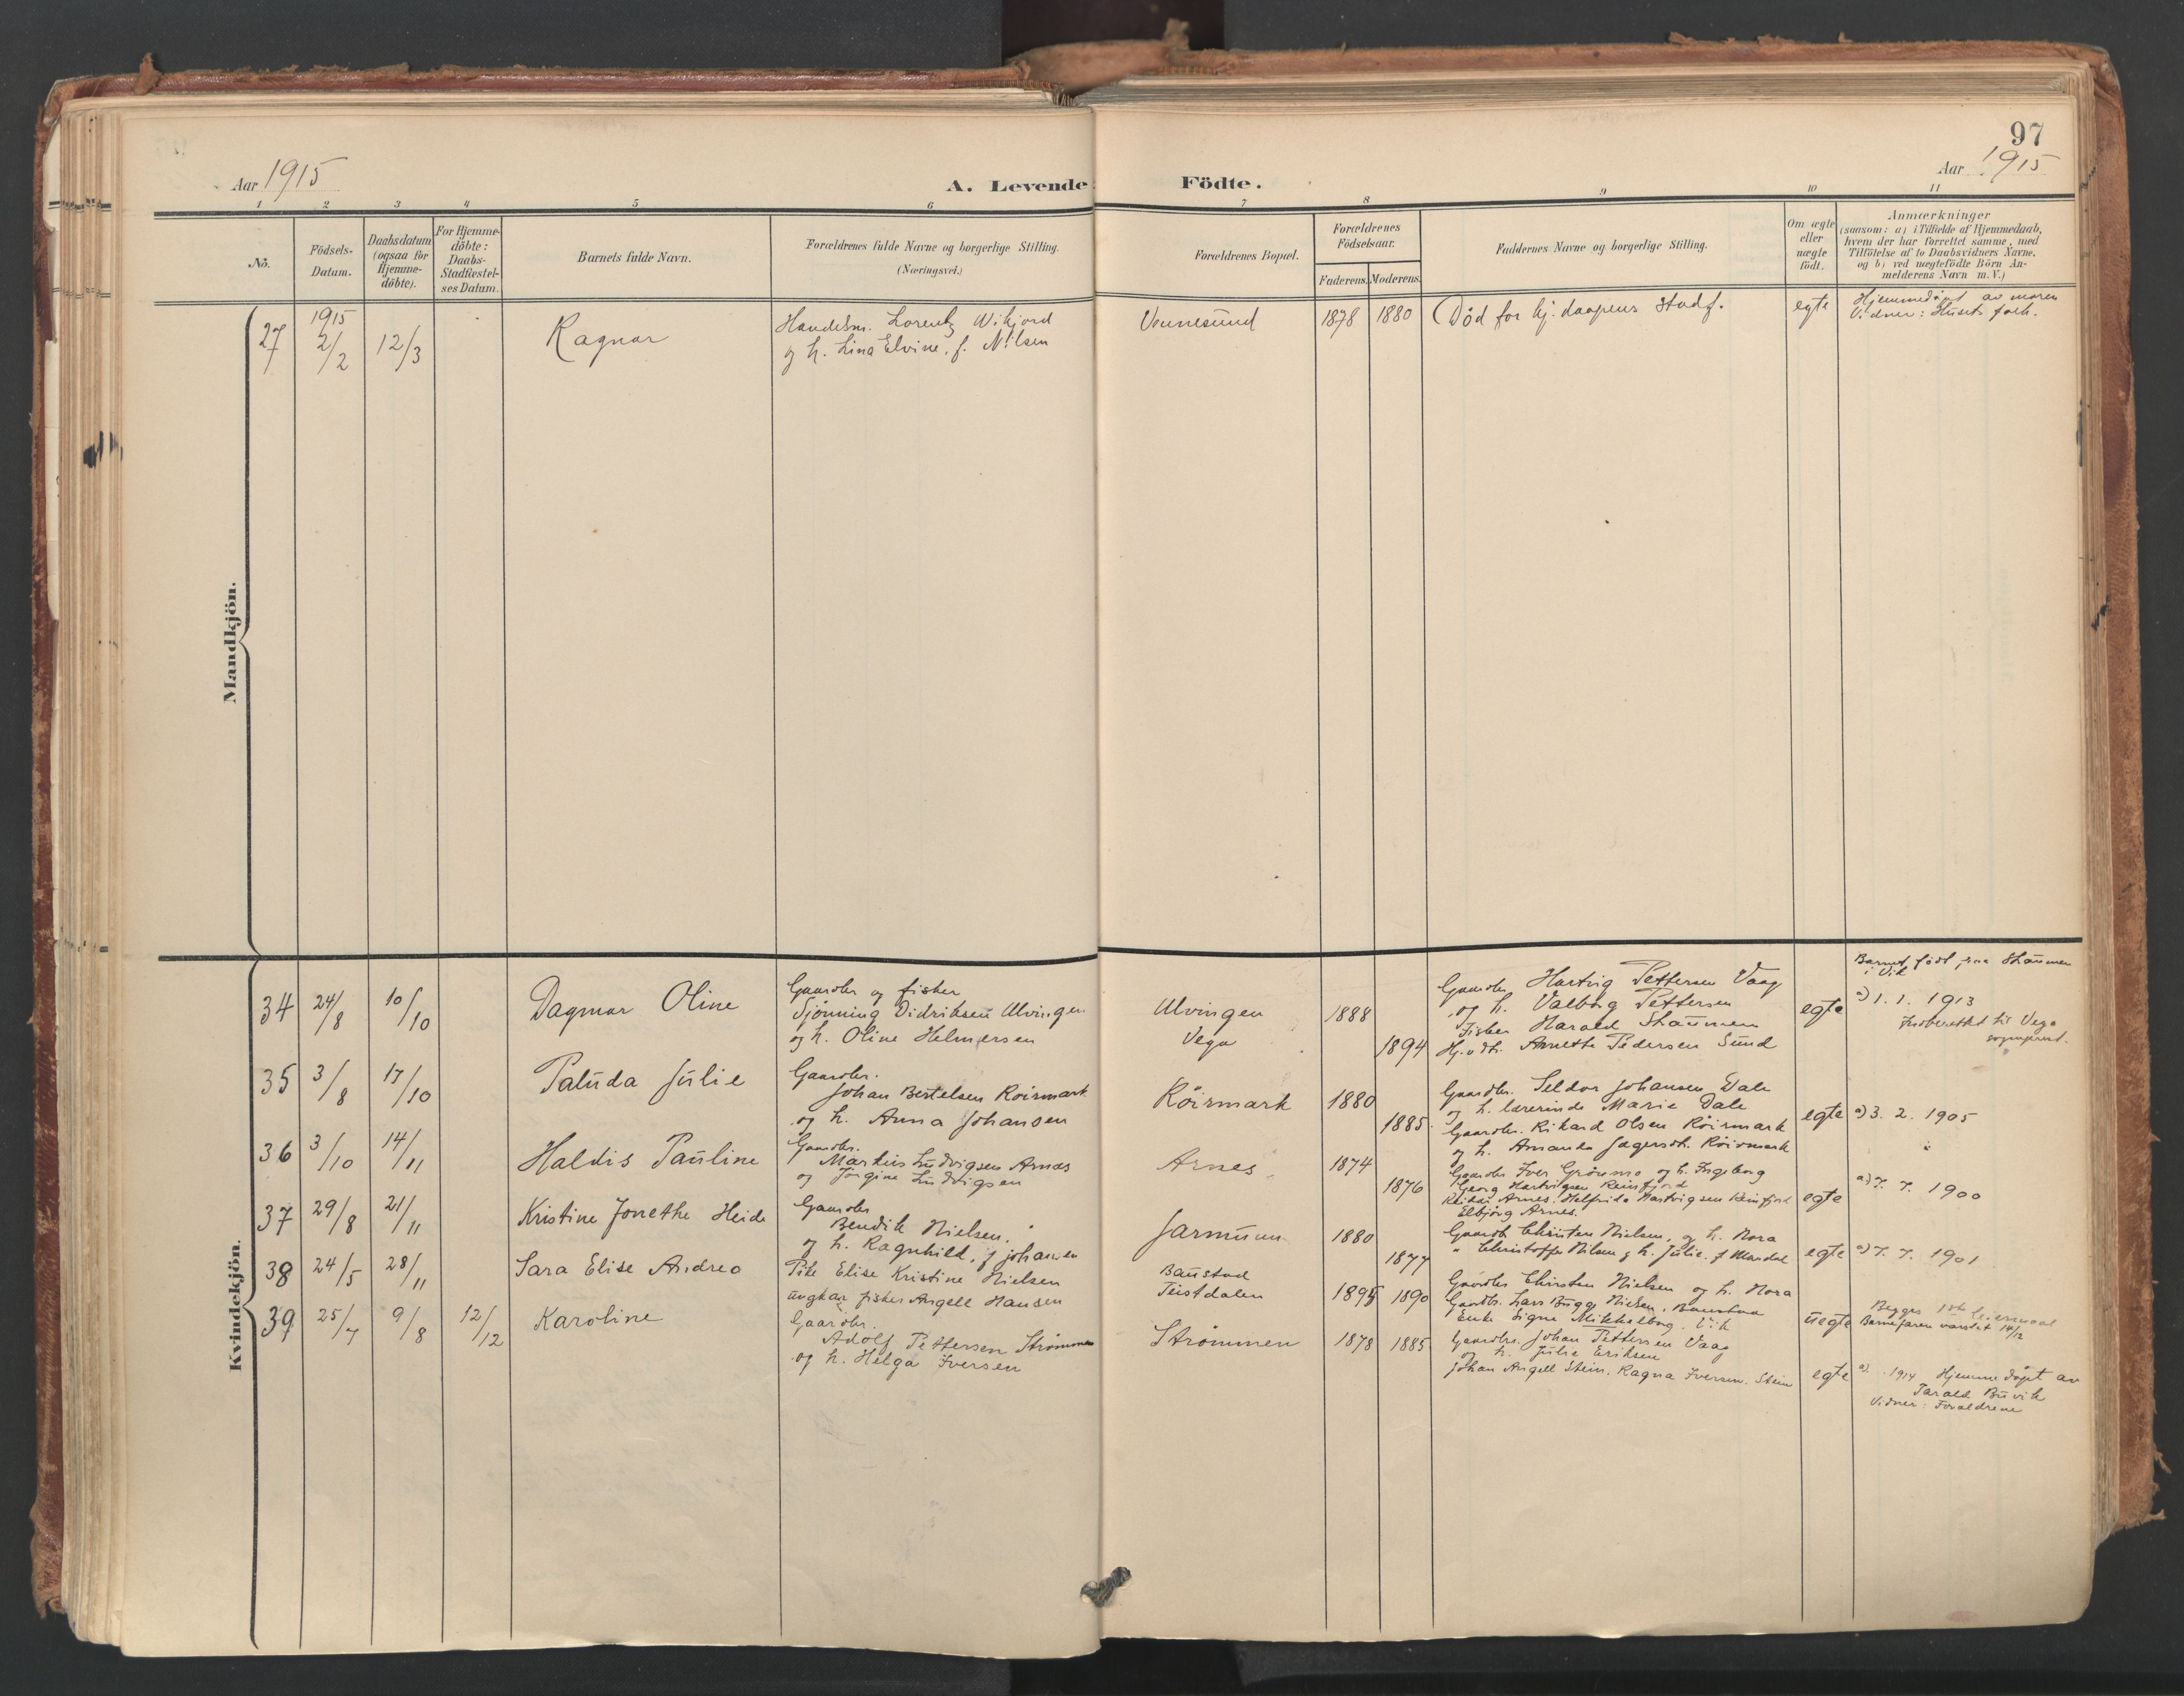 97
Aar 1915
A. Levende Födte.
Aar 1915
1 2 3 4 5 6 7 8 9 10 11
No.
Födsels-
Datum.
Daabsdatum
(ogsaa for
Hjemme-
döbte).
For Hjemme-
döbte:
Daabs-
Stadfæstel-
ses Datum.
Barnets fulde Navn.
Forældrenes fulde Navne og borgerlige Stilling.
(Næringsvei.)
Forældrenes Bopæl.
Forældrenes
Födselsaar.
Faderens. Moderens.
Faddernes Navne og borgerlige Stilling.
Om ægte
eller
uægte
födt.
Anmærkninger
(saasom: a) i Tilfælde af Hjemmedaab,
hvem der har forrettet samme, med
Tilföielse af to Daabsvidners Navne,
og b) ved uægtefödte Börn An-
melderens Navn m. V.)
Mandkjön.
27
1915
2/2
12/3
Ragnar
Handelsm. Lorentz Wikjord
og h. Lina Elvine, f. Nilsen
Vennesund
1878 1880
Död for hj. daapens stadf.
egte
Hjemmedöpt av moren
Vidner: Husets folk.
Kvindekjön.
34
24/8
10/10
Dagmar Oline
Gaardbr og fisker
Sjönning Didriksen Ulvingen
og h. Oline Helmersen
Ulvingen
Vega
1888
1894
Gaardbr Hartvig Pettersen Vaag
og h. Valborg Pettersen
Fisker Harald Skaumen
Hj.v.dt. Annette Pedersen Sund
egte
Barnet födt paa Skaumen
i Vik
a) 1. 1. 1913
Indberettet til Vega
sogneprest.
35
3/8
17/10
Paluda Julie
Gaardbr.
Johan Bertelsen Röirmark
og h. Anna Johansen
Röirmark
1880
1885
Gaardbr. Seldor Johansen Dale
og h. lærerinde Marie Dale
Gaardbr. Rikard Olsen Röirmark
og h. Amanda Jagersdt. Röirmark
egte
a) 3. 2. 1905
36
3/10
14/11
Haldis Pauline
Gaardbr.
Markus Ludvigsen Arnes
og Jörgine Ludvigsen
Arnes
1874
1876
Gaardbr Iver Grönmo og h. Ingeborg
Georg Hartvigsen Reinfjord
Reidar Arnes. Helfrida Hartvigsen Reinfjord
Elbjörg Arnes.
egte
a) 7. 7. 1900
37
29/8
21/11
Kristine Jonethe Heide
Gaardbr
Bendik Nielsen,
og h. Ragnhild, f Johansen
Jarmunn
1880
1877
Gaardb Christen Nielsen, og h. Nora
" Christoffer Nilsen g h. Julie. f Mardal
egte
a) 7. 7. 1901
38
24/5
28/11
Sara Elise Andrea
Pike Elise Kristine Nielsen
ungkar fisker Angell Hansen
Baustad
Teistdalen
1895 1890
Gaardbr Christen Nielsen og h. Nora
Gaardb. Lars Bugge Nielsen, Baustad
Enke Signe Mikkelborg, Vik
uegte
Begges 1ste leiermaal
Barnefaren varslet 14/12
39
25/7
9/8
12/12
Karoline
Gaardbr.
Adolf Pettersen Strömmen
og h. Helga Iversen
Strömmen
1878 1885
Gaardbr. Johan Pettersen Vaag
og h. Julie Eriksen
Johan Angell Stein. Ragna Iversen. Stein
egte
a) 1914 Hjemmedöpt av
Tarald Buvik
Vidner: Forældrene